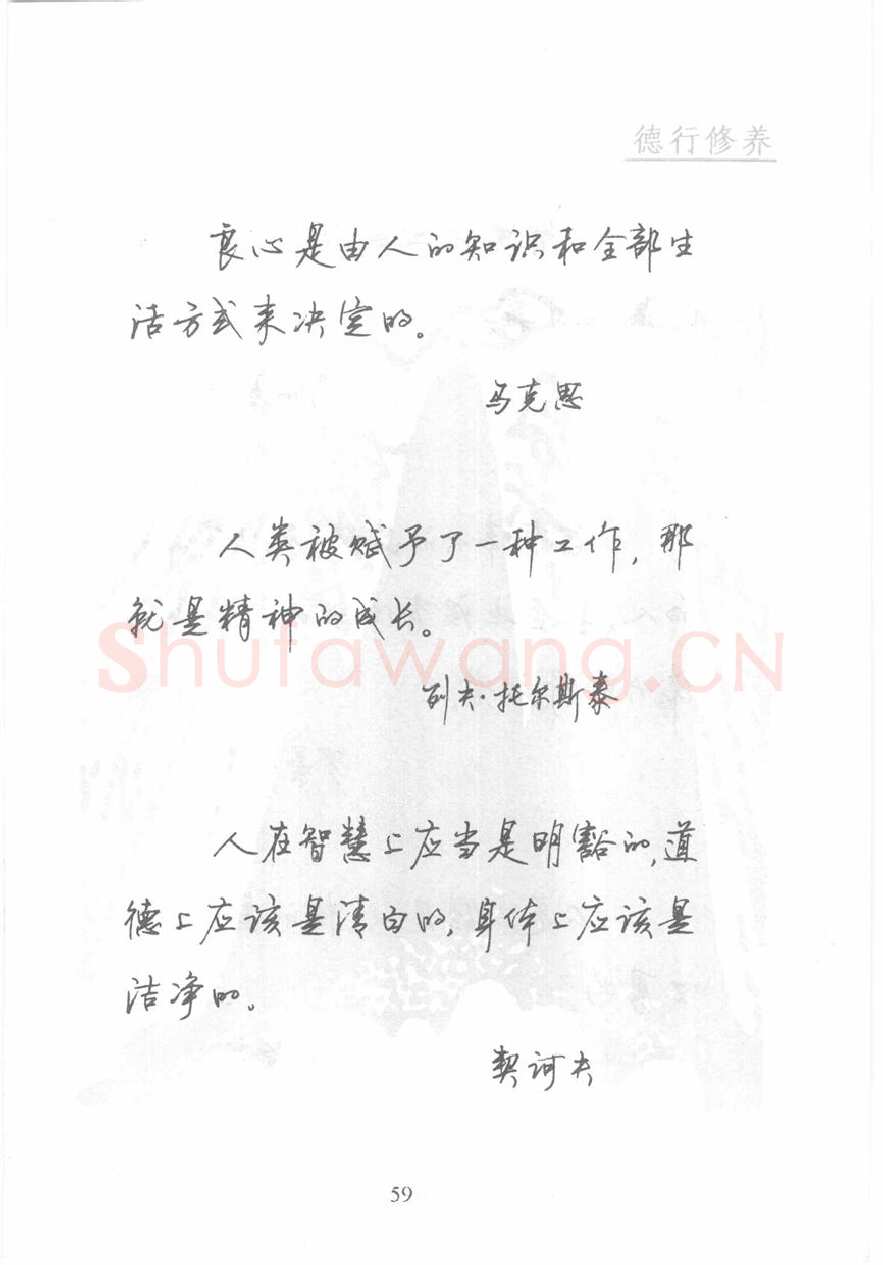 德行修养
良心是由人的知识和全部生
活方式来决定的。
马克思
人类被赋予了一种工作，那
就是精神的成长。
Shufawang.CN
列夫·托尔斯泰
人在智慧上应当是明豁的，道
德上应该是清白的，身体上应该是
洁净的。
契诃夫
59